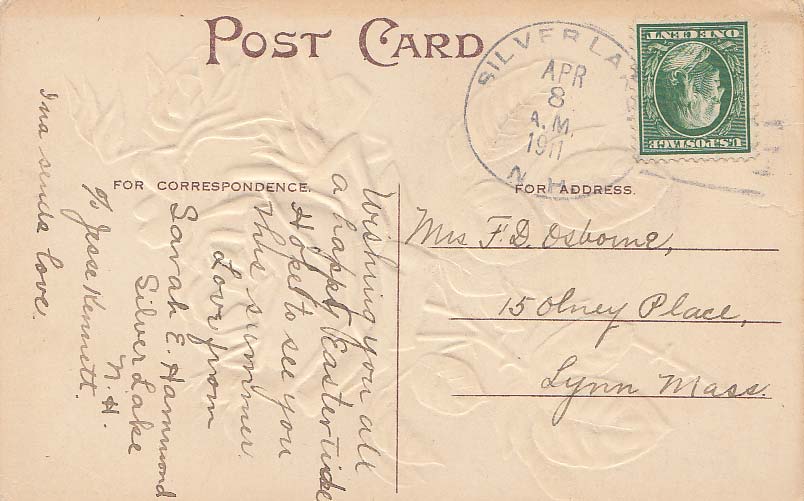 POST CARD
SILVER LA
APR
8
A.M.
1911
N.H.
U.S. POSTAGE
ONE CENT
FOR CORRESPONDENCE.
FOR ADDRESS.
Wishing you all
a happy Eastertide
Hope to see you
this summer.
Love from
Sarah E. Hammond
Silver Lake
N.H.
c/o Jesse Kennett.
Ina sends love.
Mrs F. D. Osborne,
15 Olney Place,
Lynn Mass.